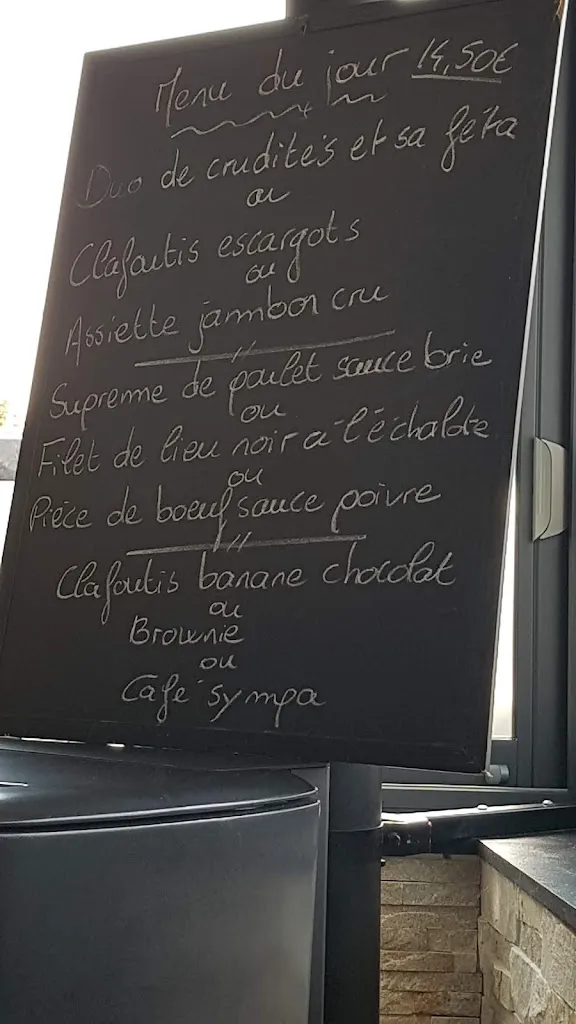 Menu du jour 14,50€
Duo de crudités et sa féta
ou
Clafoutis escargots
ou
Assiette jambon cru
Supreme de poulet sauce brie
ou
Filet de lieu noir a l'échalote
ou
Pièce de boeuf sauce poivre
Clafoutis banane chocolat
ou
Brownie
ou
Café sympa